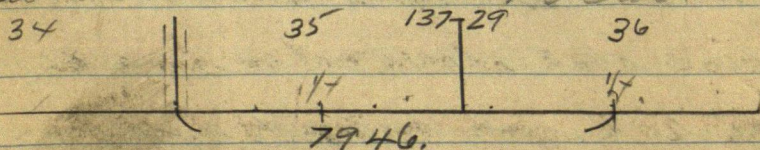 34 35 137-29 36
1/4 1/4
7946.